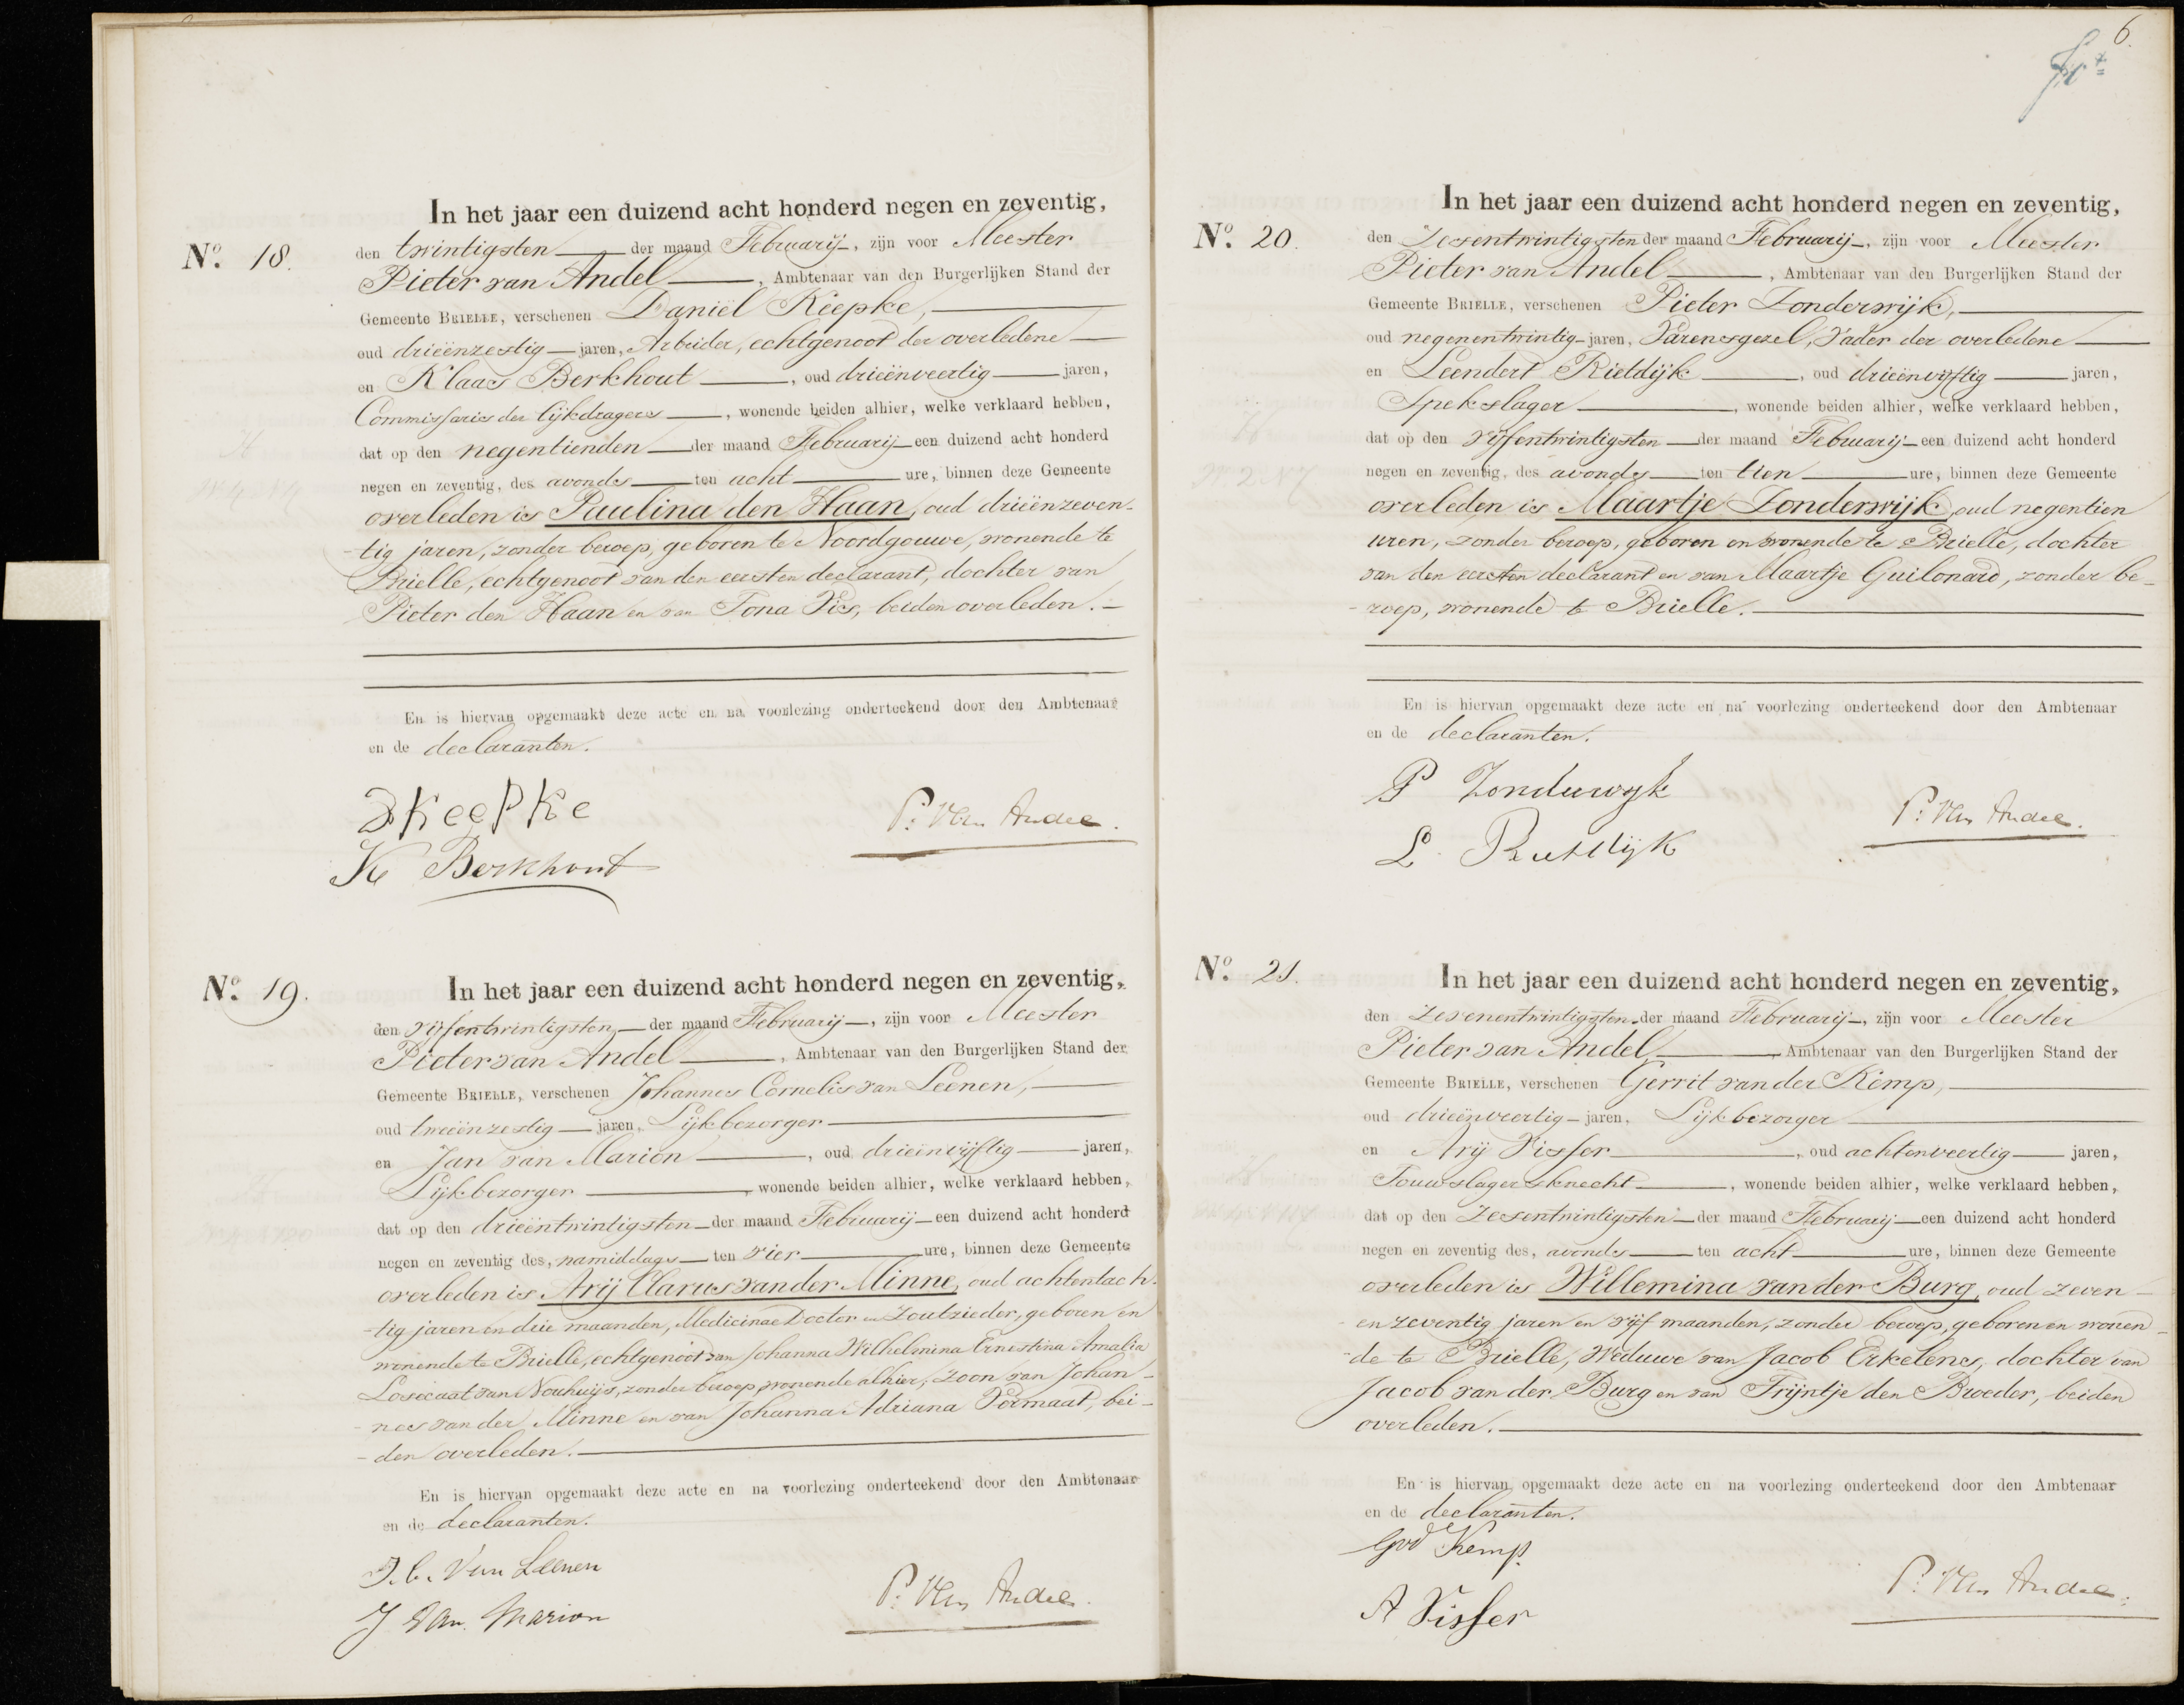 In het jaar een duizend acht honderd negen en zeventig,
No. 18. den twintigsten der maand Februarij, zijn voor Meester
Pieter van Andel, Ambtenaar van den Burgerlijken Stand der
Gemeente BRIELLE, verschenen Daniël Kiepke,
oud drieënzestig jaren, Arbeider, echtgenoot der overledene
en Klaas Berkhout, oud drieënveertig jaren,
Commissaris der lijkdragers, wonende beiden alhier, welke verklaard hebben,
dat op den negentienden der maand Februarij een duizend acht honderd
negen en zeventig, des avonds ten acht ure, binnen deze Gemeente
overleden is Paulina den Haan, oud drieënzeven-
tig jaren, zonder beroep, geboren te Noordgouwe, wonende te
Brielle, echtgenoot van den eersten declarant, dochter van
Pieter den Haan en van Tona Vis, beiden overleden.
En is hiervan opgemaakt deze acte en na voorlezing onderteekend door den Ambtenaar
en de declaranten.
D Keepke
P. van Andel.
K Berkhout
No. 19. In het jaar een duizend acht honderd negen en zeventig,
den vijfentwintigsten der maand Februarij, zijn voor Meester
Pieter van Andel, Ambtenaar van den Burgerlijken Stand der
Gemeente BRIELLE, verschenen Johannes Cornelis van Leenen,
oud tweeënzestig jaren, Lijkbezorger
en Jan van Marion, oud drieënvijftig jaren,
Lijkbezorger, wonende beiden alhier, welke verklaard hebben,
dat op den drieëntwintigsten der maand Februarij een duizend acht honderd
negen en zeventig des, namiddags ten vier ure, binnen deze Gemeente
overleden is Arij Clarus van der Minne, oud achtentach-
tig jaren en drie maanden, Medicinae Doctor en Zoutzieder, geboren en
wonende te Brielle, echtgenoot van Johanna Wilhelmina Ernestina Amalia
van Nouhuijs, zonder beroep, wonende alhier, zoon van Johan-
nes van der Minne en van Johanna Adriana Vermaat, bei-
den overleden.
En is hiervan opgemaakt deze acte en na voorlezing onderteekend door den Ambtenaar
en de declaranten.
J. C. Van Leenen
P. van Andel.
J van Marion
6.
In het jaar een duizend acht honderd negen en zeventig,
No. 20. den Zesentwintigsten der maand Februarij, zijn voor Meester
Pieter van Andel, Ambtenaar van den Burgerlijken Stand der
Gemeente BRIELLE, verschenen Pieter Zonderwijk,
oud negenentwintig jaren, Varensgezel, Vader der overledene
en Leendert Rietdijk, oud drieënvijftig jaren,
Spekslager, wonende beiden alhier, welke verklaard hebben,
dat op den vijfentwintigsten der maand Februarij een duizend acht honderd
negen en zeventig, des avonds ten tien ure, binnen deze Gemeente
overleden is Maartje Zonderwijk, oud negentien
uren, zonder beroep, geboren en wonende te Brielle, dochter
van den eersten declarant en van Maartje Guilonard, zonder be-
roep, wonende te Brielle.
En is hiervan opgemaakt deze acte en na voorlezing onderteekend door den Ambtenaar
en de declaranten.
P Zonderwyk
P. van Andel.
L. Rietdijk
No. 21. In het jaar een duizend acht honderd negen en zeventig,
den Zevenentwintigsten der maand Februarij, zijn voor Meester
Pieter van Andel, Ambtenaar van den Burgerlijken Stand der
Gemeente BRIELLE, verschenen Gerrit van der Kemp,
oud drieënveertig jaren, Lijkbezorger
en Arij Visser, oud achtenveertig jaren,
Touwslagersknecht, wonende beiden alhier, welke verklaard hebben,
dat op den Zesentwintigsten der maand Februarij een duizend acht honderd
negen en zeventig des, avonds ten acht ure, binnen deze Gemeente
overleden is Willemina van der Burg, oud zeven-
en zeventig jaren en vijf maanden, zonder beroep, geboren en wonen-
de te Brielle, Weduwe van Jacob Erkelens, dochter van
Jacob van der Burg en van Trijntje den Broeder, beiden
overleden.
En is hiervan opgemaakt deze acte en na voorlezing onderteekend door den Ambtenaar
en de declaranten.
Gvd Kemp.
P. van Andel.
A Visser